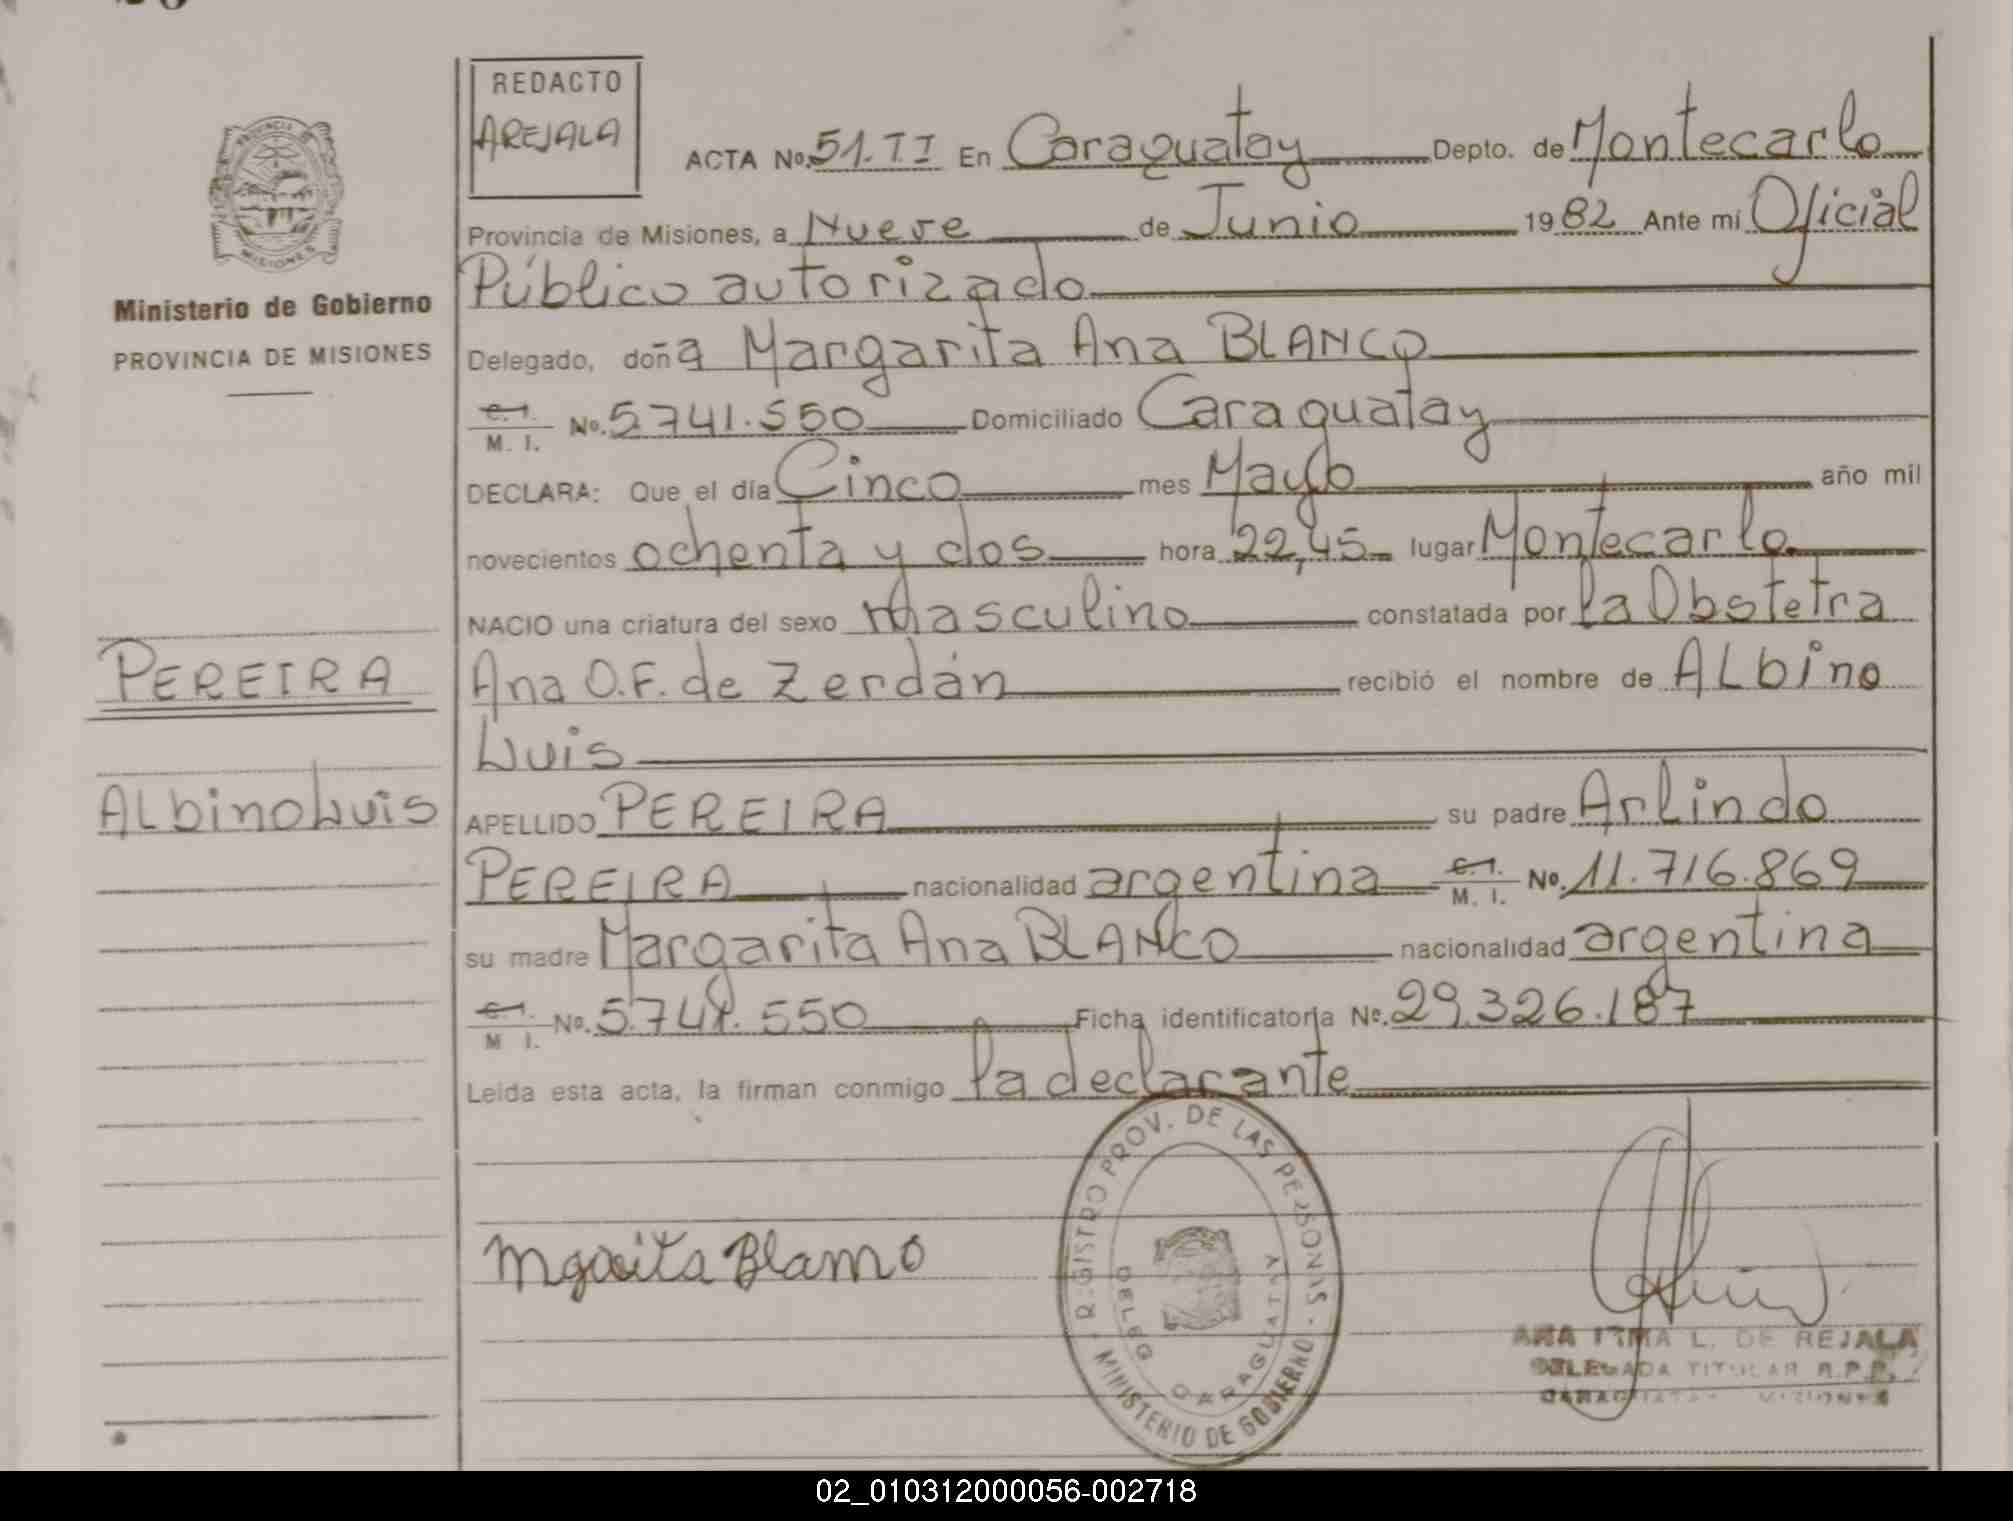 REDACTO
AREJALA
ACTA No. 51.II En Caraguatay Depto. de Montecarlo
Provincia de Misiones, a Nueve de Junio 1982 Ante mi Oficial
Público autorizado
Delegado, doña Margarita Ana BLANCO
C.I. M. I. No. 5.741.550 Domiciliado Caraguatay
DECLARA: Que el día Cinco mes Mayo año mil
novecientos ochenta y dos hora 22,45 lugar Montecarlo
NACIO una criatura del sexo masculino constatada por la Obstetra
Ana O.F. de Zerdán recibió el nombre de ALbino
Luis
APELLIDO PEREIRA su padre Arlindo
PEREIRA nacionalidad argentina C.I. M. I. No. 11.716.869
su madre Margarita Ana BLANCO nacionalidad argentina
C.I. M I. No. 5.741.550 Ficha identificatoria No. 29.326.187
Leida esta acta, la firman conmigo la declarante
PROVINCIA DE
MISIONES
Ministerio de Gobierno
PROVINCIA DE MISIONES
PEREIRA
ALbino Luis
REGISTRO PROV. DE LAS PERSONAS
MINISTERIO DE GOBIERNO
DELEG CARAGUATAY
Mgarita Blanco
ANA IRMA L. DE REJALA
DELEGADA TITULAR R.P.P.
CARAGUATAY MISIONES
02_010312000056-002718